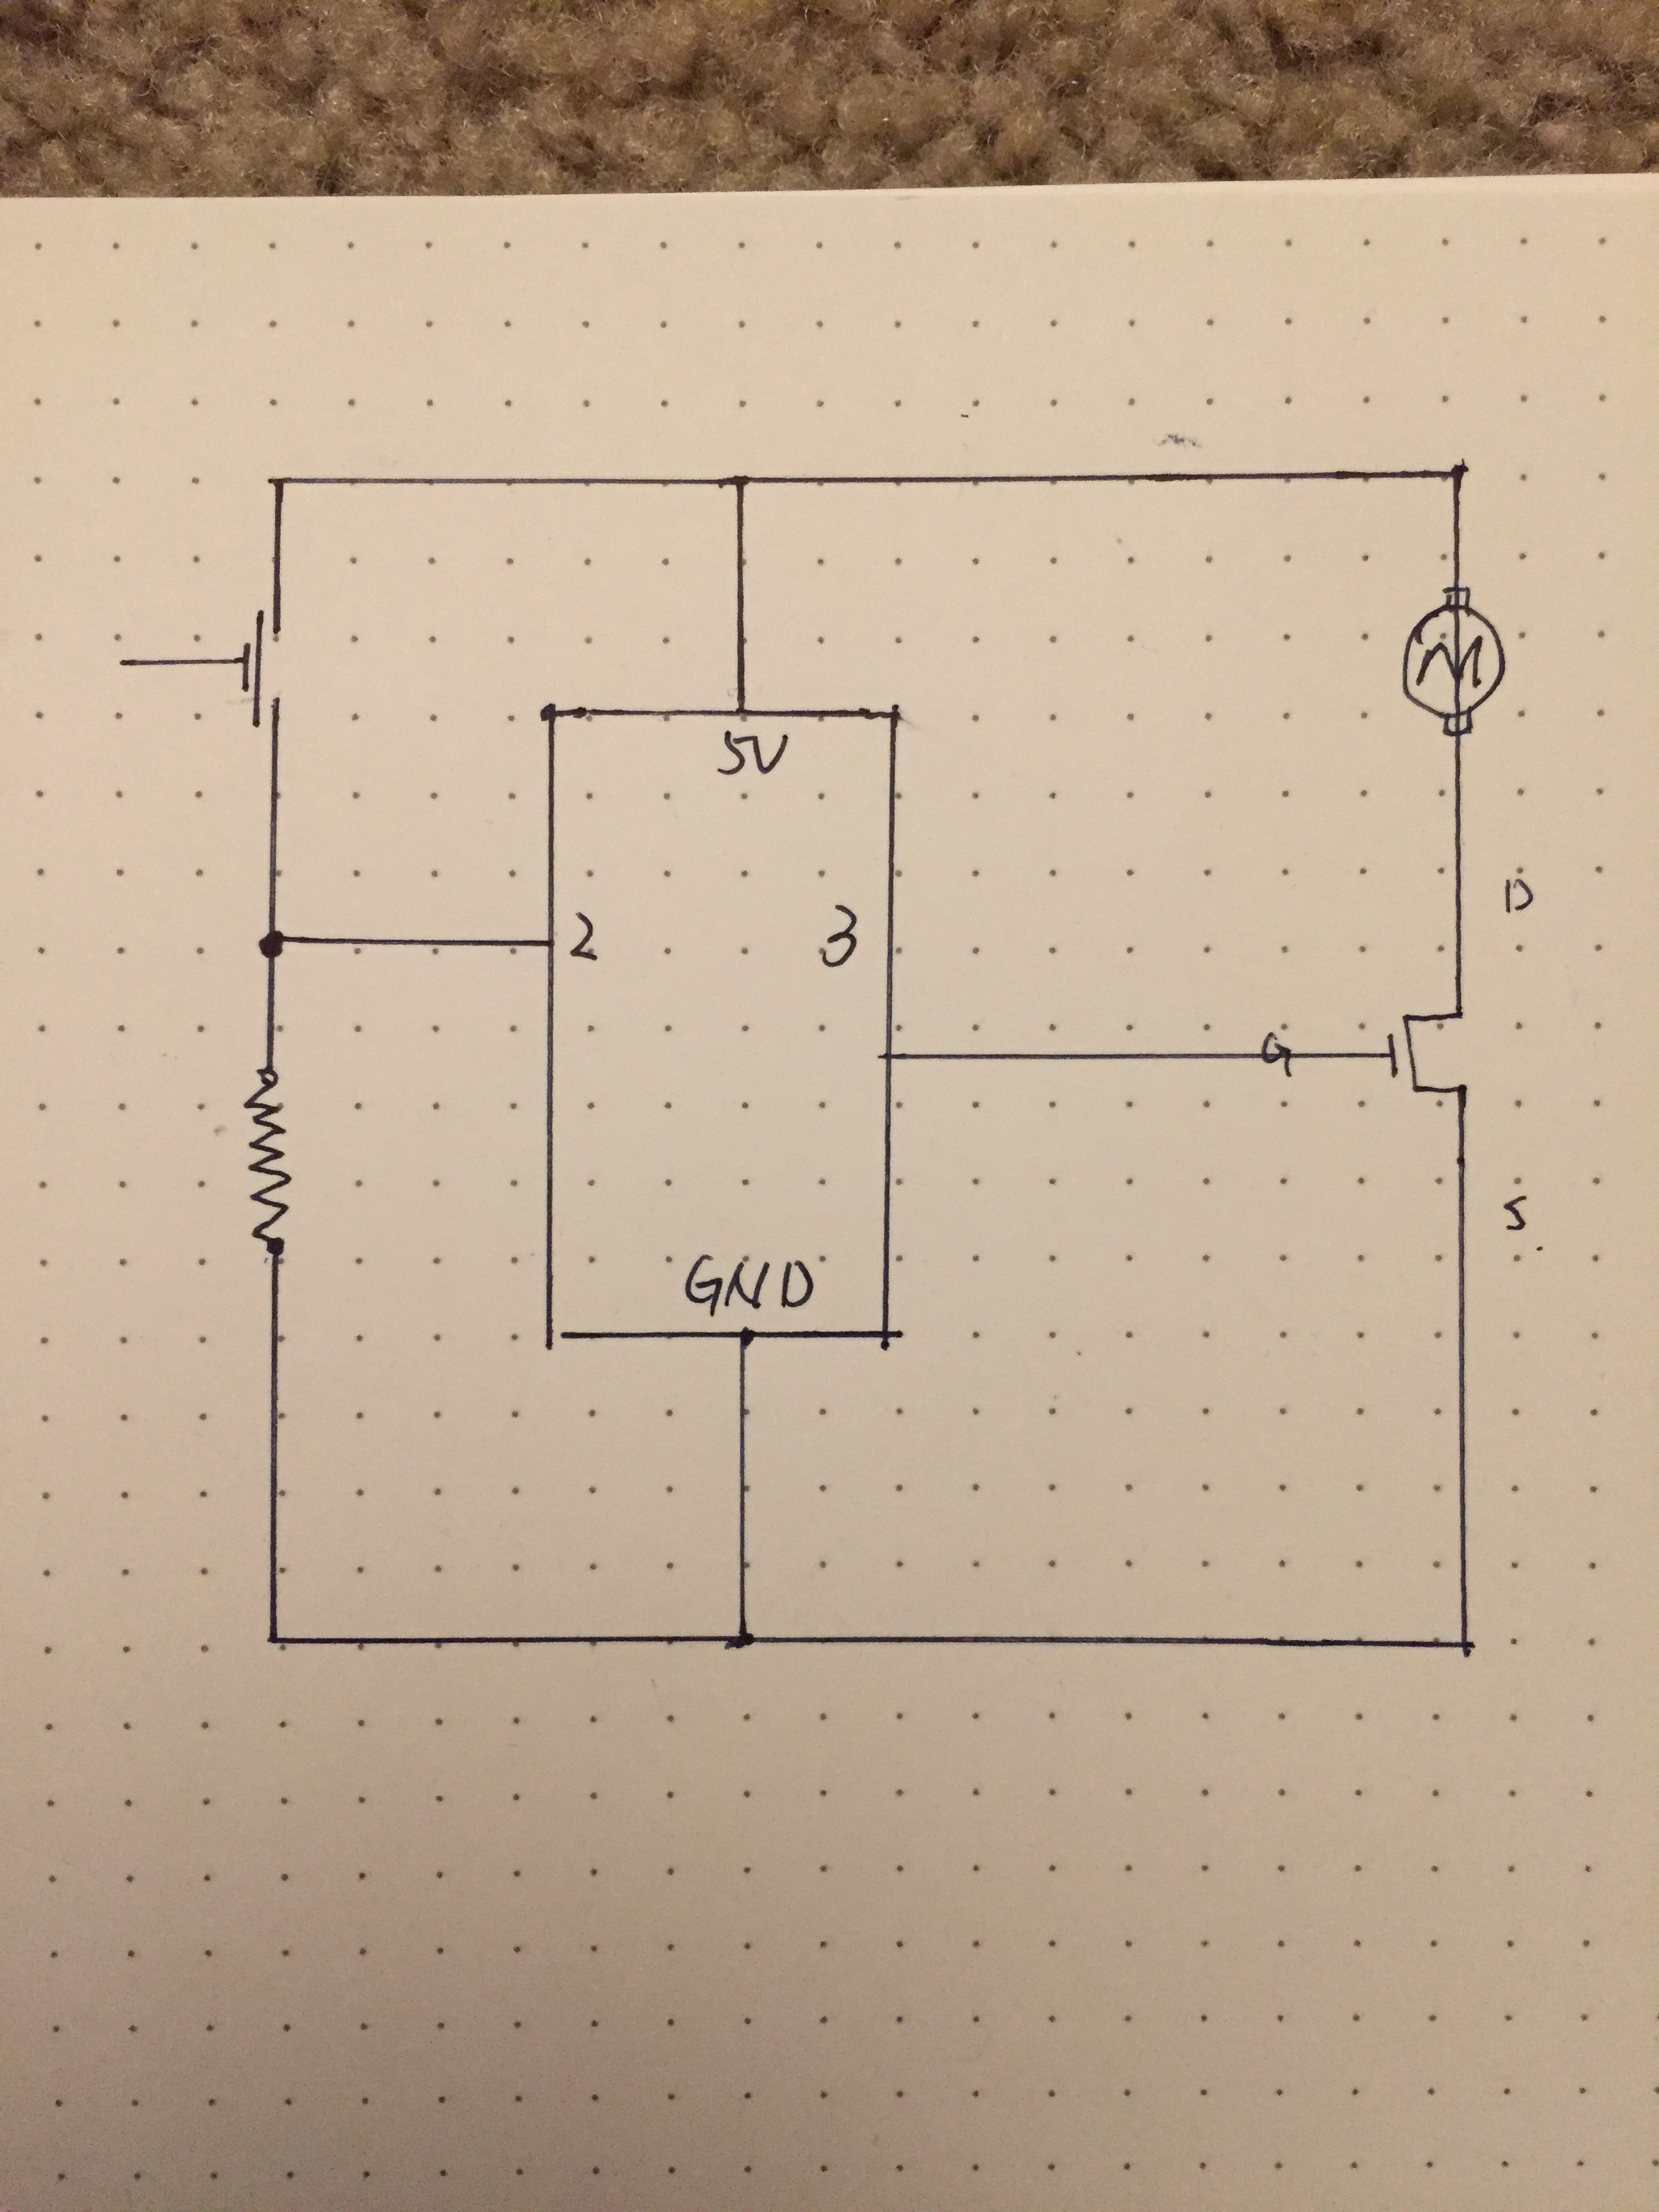 M
5V
D
2 3
G
S
GND